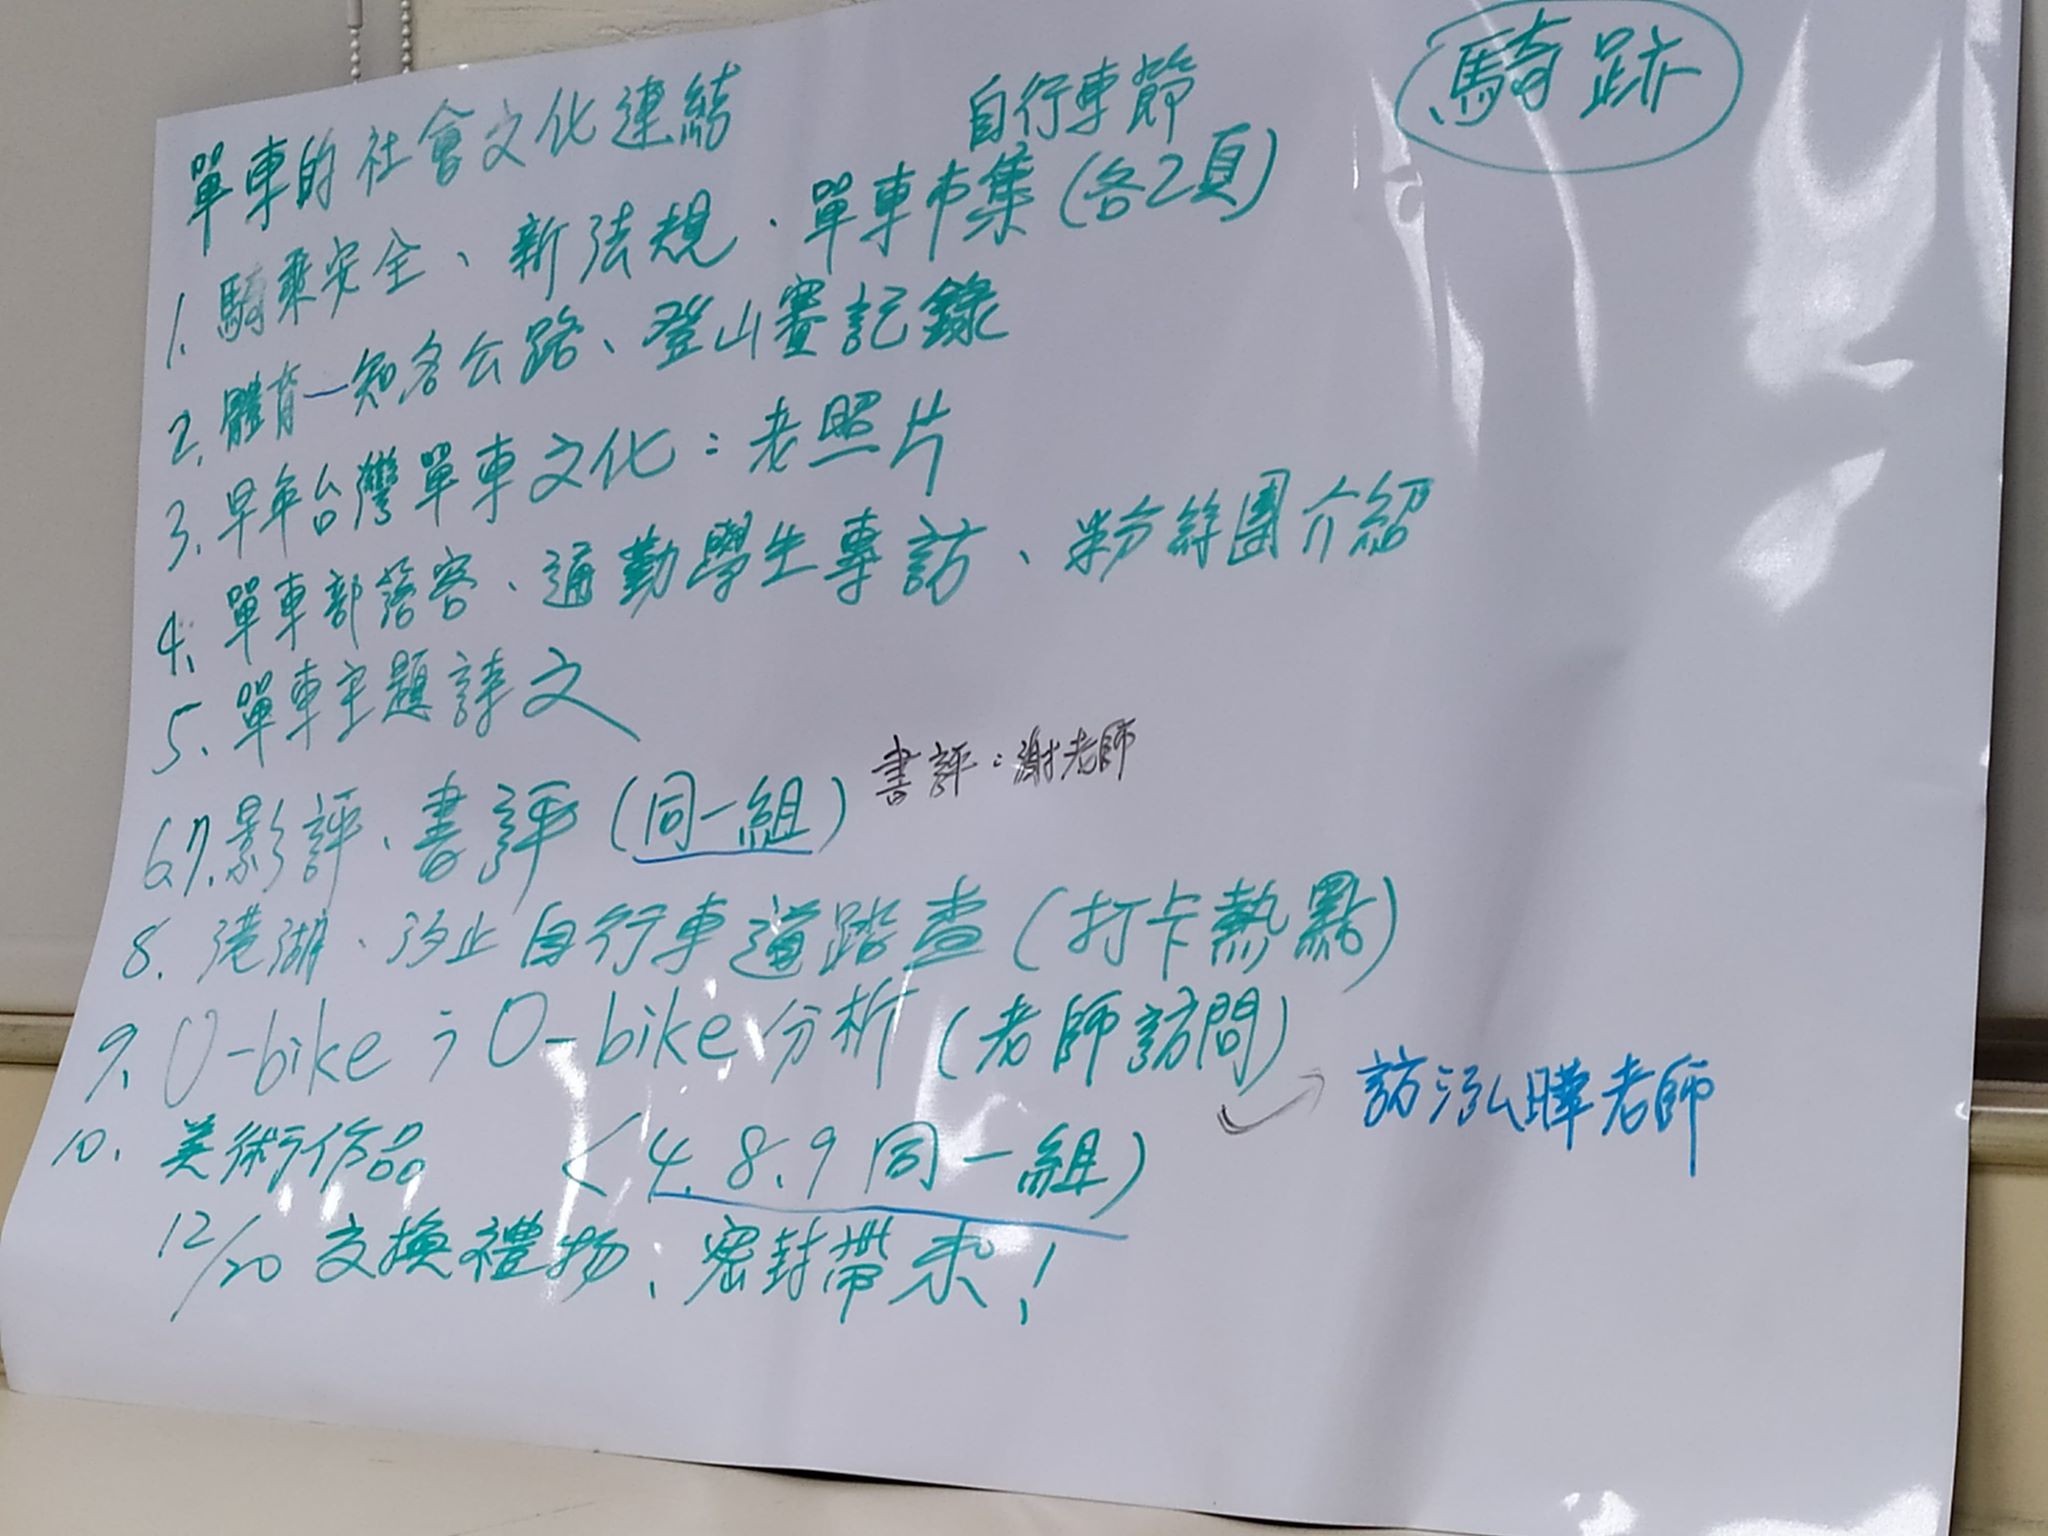 騎跡
單車的社會文化連結
自行車節
1. 騎乘安全、新法規、單車市集(各2頁)
2. 體育—知名公路、登山賽記錄
3. 早年台灣單車文化：老照片
4. 單車部落客、通勤學生專訪、粉絲團介紹
5. 單車主題詩文
6.7. 影評、書評(同一組)
書評：謝老師
8. 港湖、汐止自行車道踏查(打卡熱點)
9. U-bike；O-bike分析(老師訪問)
訪泓曄老師
10. 美術作品 (4.8.9同一組)
12/20 交換禮物、密封帶來！